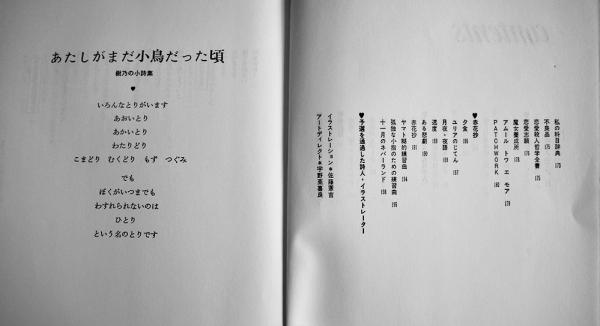 あたしがまだ小鳥だった頃
樹乃の小詩集
♥
いろんなとりがいます
あおいとり
あかいとり
わたりどり
こまどり むくどり もず つぐみ
でも
ぼくがいつまでも
わすれられないのは
ひとり
という名のとりです
私の料目辞典
不良品
恋愛殺人哲学全書
恋愛志願
魔女養成所
アムール トウ エ モア
PATCHWORK
♥赤花抄
夕食
ユリアのじてん
月夜・夜話
速度
ある悲劇
赤花抄
ヤマト糊的練習曲
孤独な小指のための練習曲
十一月のネバーランド
♥予選を通過した詩人・イラストレーター
イラストレーション●佐藤憲吉
アートディレクト●宇野亜喜良